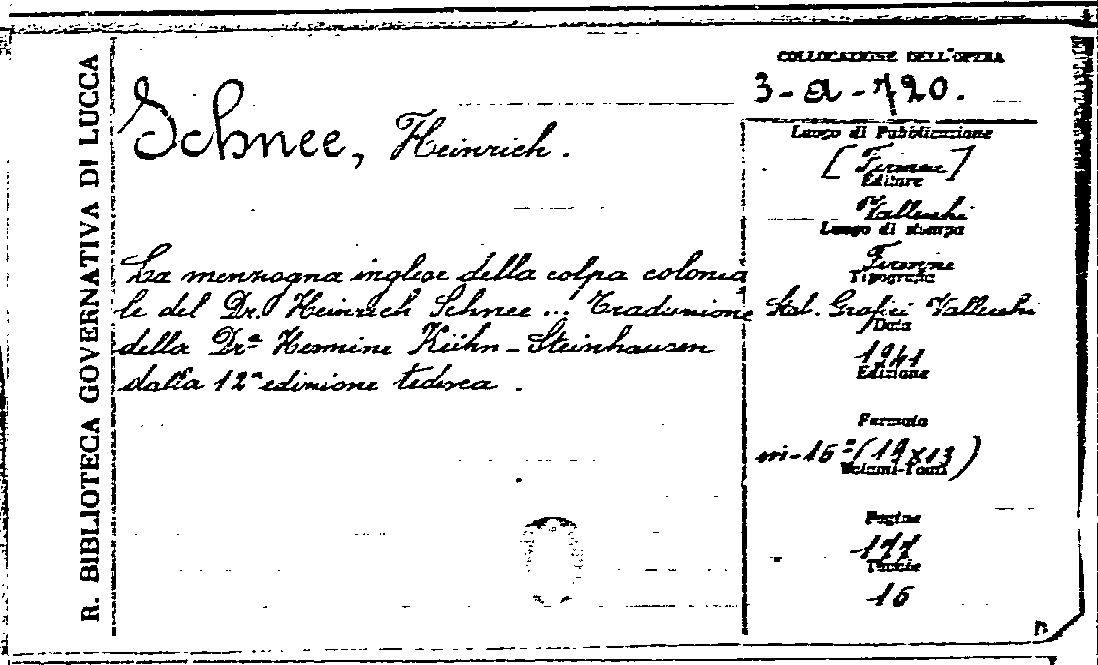 R. BIBLIOTECA GOVERNATIVA DI LUCCA
Schnee, Heinrich.
La menzogna inglese della colpa colonia
le del Dr. Heinrich Schnee ... Traduzione
della Dra Hermine Kühn-Steinhausen
dalla 12a edizione tedesca.
COLLOCAZIONE DELL'OPERA
3-a-720.
Luogo di Pubblicazione
[Firenze]
Editore
Vallecchi
Luogo di stampa
Firenze
Tipografia
Stab. Grafici Vallecchi
Data
1941
Edizione
Formato
in-16° (19x13)
Volumi-Tomi
Pagine
177
Tavole
16